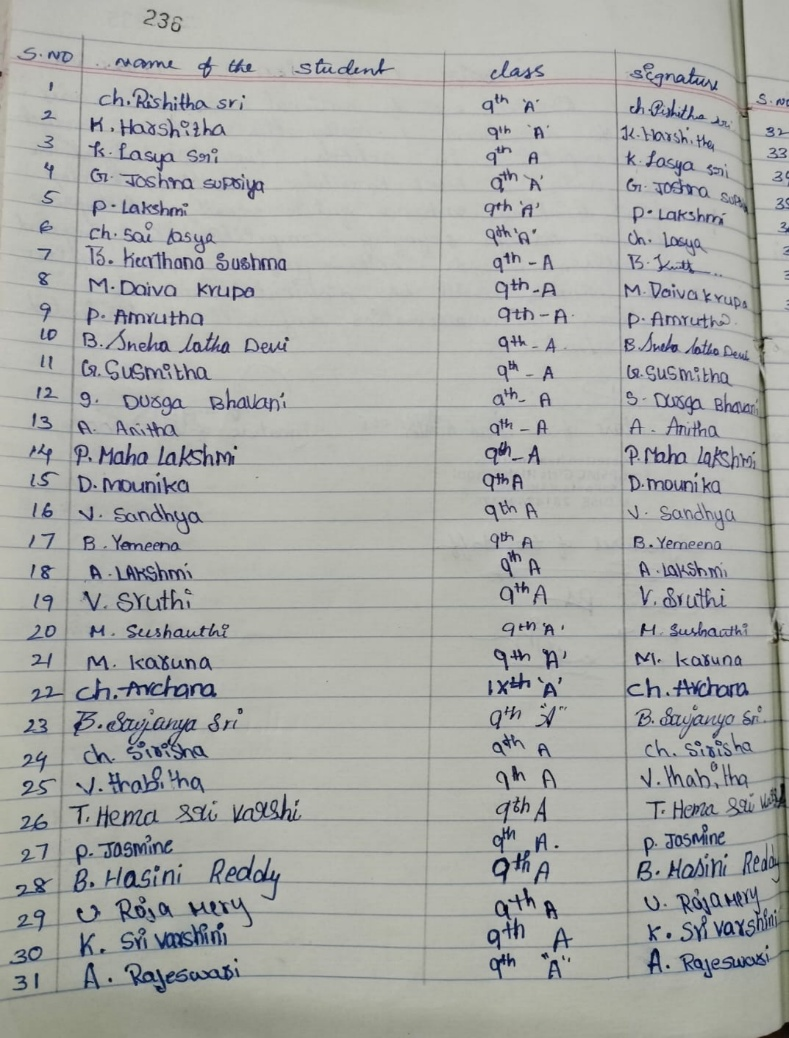 236
S.NO Name of the student class signature S.NO
1 ch. Rishitha sri 9th 'A' ch. Rishitha sri
2 K. Harshitha 9th 'A' K. Harshitha 32
3 K. Lasya Sri 9th A K. Lasya sri 33
4 G. Joshna supriya 9th 'A' G. Joshna
5 P. Lakshmi 9th 'A' P. Lakshmi
6 ch. Sai lasya 9th 'A' ch. Lasya
7 B. Keerthana Sushma 9th - A B.
8 M. Daiva Krupa 9th - A M. Daiva Krupa
9 P. Amrutha 9th - A P. Amrutha
10 B. Sneha latha Devi 9th - A B. Sneha latha Devi
11 G. Susmitha 9th - A G. Susmitha
12 S. Durga Bhavani 9th - A S. Durga Bhavani
13 A. Anitha 9th - A A. Anitha
14 P. Maha Lakshmi 9th - A P. Maha Lakshmi
15 D. mounika 9th A D. mounika
16 V. Sandhya 9th A V. Sandhya
17 B. Yemeena 9th A B. Yemeena
18 A. LAKshmi 9th A A. Lakshmi
19 V. Sruthi 9th A V. Sruthi
20 M. Sushanthi 9th 'A' M. Sushanthi
21 M. Karuna 9th 'A' M. Karuna
22 ch. Archana IXth 'A' ch. Archana
23 B. Sowjanya Sri 9th "A" B. Sowjanya Sri
24 ch. Sirisha 9th A ch. Sirisha
25 V. thabitha 9th A V. thabitha
26 T. Hema Sai Varshi 9th A T. Hema Sai
27 P. Jasmine 9th A. P. Jasmine
28 B. Hasini Reddy 9th A B. Hasini Reddy
29 U Roja Mery 9th A U. Roja Mery
30 K. Sri varshini 9th A K. Sri varshini
31 A. Rajeswari 9th "A" A. Rajeswari